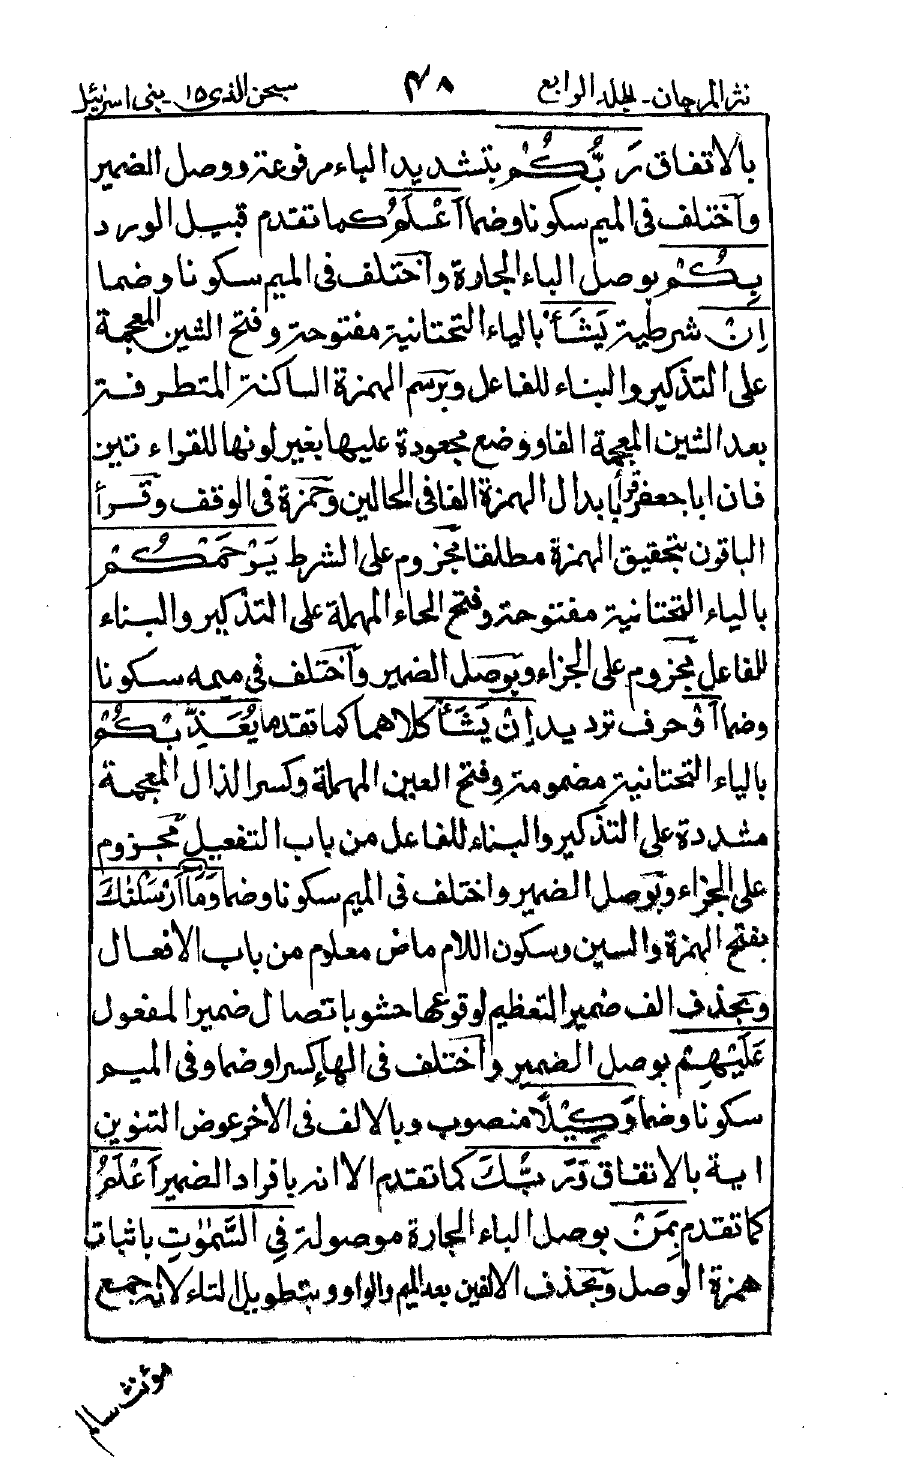 نثر المرجان - لمجلد الرابع ٤٨ سبحن الذى ١٥ - بنى اسرئيل
بالاتفاق رَبُّكُمْ بتشديد الباء مرفوعة ووصل الضمير
وٱختلف فى الميم سكونا وضما أَعْلَمُ كما تقدم قبيل الورد
بِكُمْ بوصل الباء الجارة وٱختلف فى الميم سكونا وضما
إِنْ شرطية يَشَأْ بالياء التحتانية مفتوحة وفتح الشين المعجمة
على التذكير والبناء للفاعل وبرسم الهمزة الساكنة المتطرفة
بعد الشين المعجمة الفا ووضع مجعودة عليها بغير لونها للقراءتين
فان ابا جعفر قرأ بابدال الهمزة الفا فى الحالين وحمزة فى الوقف وقرأ
الباقون بتحقيق الهمزة مطلقا مجزوم على الشرط يَرْحَمْكُمْ
بالياء التحتانية مفتوحة وفتح الحاء المهملة على التذكير والبناء
للفاعل مجزوم على الجزاء وبوصل الضمير وٱختلف فى ميمه سكونا
وضما أَوْ حرف ترديد إِنْ يَشَأْ كلاهما كما تقدما يُعَذِّبْكُمْ
بالياء التحتانية مضمومة وفتح العين المهملة وكسر الذال المعجمة
مشددة على التذكير والبناء للفاعل من باب التفعيل مجزوم
على الجزاء وبوصل الضمير واختلف فى الميم سكونا وضما وَمَآ أَرْسَلْنٰكَ
بفتح الهمزة والسين وسكون اللام ماض معلوم من باب الافعال
وبحذف الف ضمير التعظيم لوقوعها حشوا باتصال ضمير المفعول
عَلَيْهِمْ بوصل الضمير وٱختلف فى الهاء كسرا وضما وفى الميم
سكونا وضما وَكِيْلًا منصوب وبالالف فى الاخر عوض التنوين
اية بالاتفاق وَرَبُّكَ كما تقدم الا انه بافراد الضمير أَعْلَمُ
كما تقدم بِمَنْ بوصل الباء الجارة موصولة فِى السَّمٰوٰتِ باثبات
همزة الوصل وبحذف الالفين بعد الميم والواو وبتطويل التاء لانه جمع
مؤنث سالم